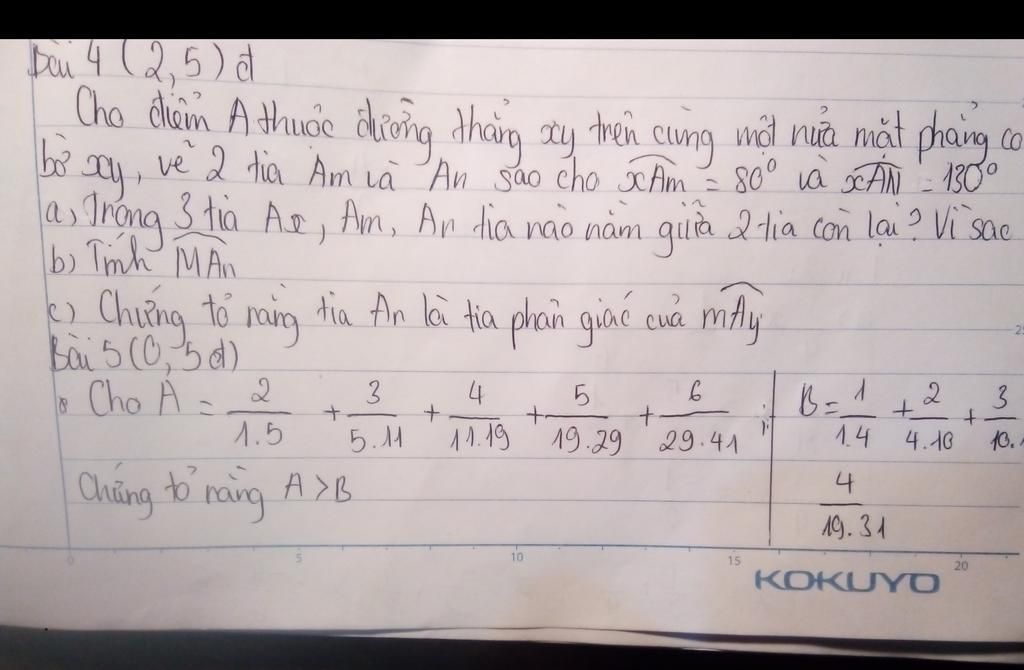 Bài 4 (2,5) đ
Cho điểm A thuộc đường thẳng xy trên cùng một nửa mặt phẳng co
bờ xy, vẽ 2 tia Am và An sao cho xAm = 80° và xAN = 130°
a, Trong 3 tia Ax, Am, An tia nào nằm giữa 2 tia còn lại? Vì sao
b) Tính MAn
c) Chứng tỏ rằng tia An là tia phân giác của mAy
Bài 5 (0,5 đ)
Cho A = 2/1.5 + 3/5.11 + 4/11.19 + 5/19.29 + 6/29.41 ; B = 1/1.4 + 2/4.10 + 3/10.
Chứng tỏ rằng A > B 4/19.31
0 5 10 15 20
KOKUYO